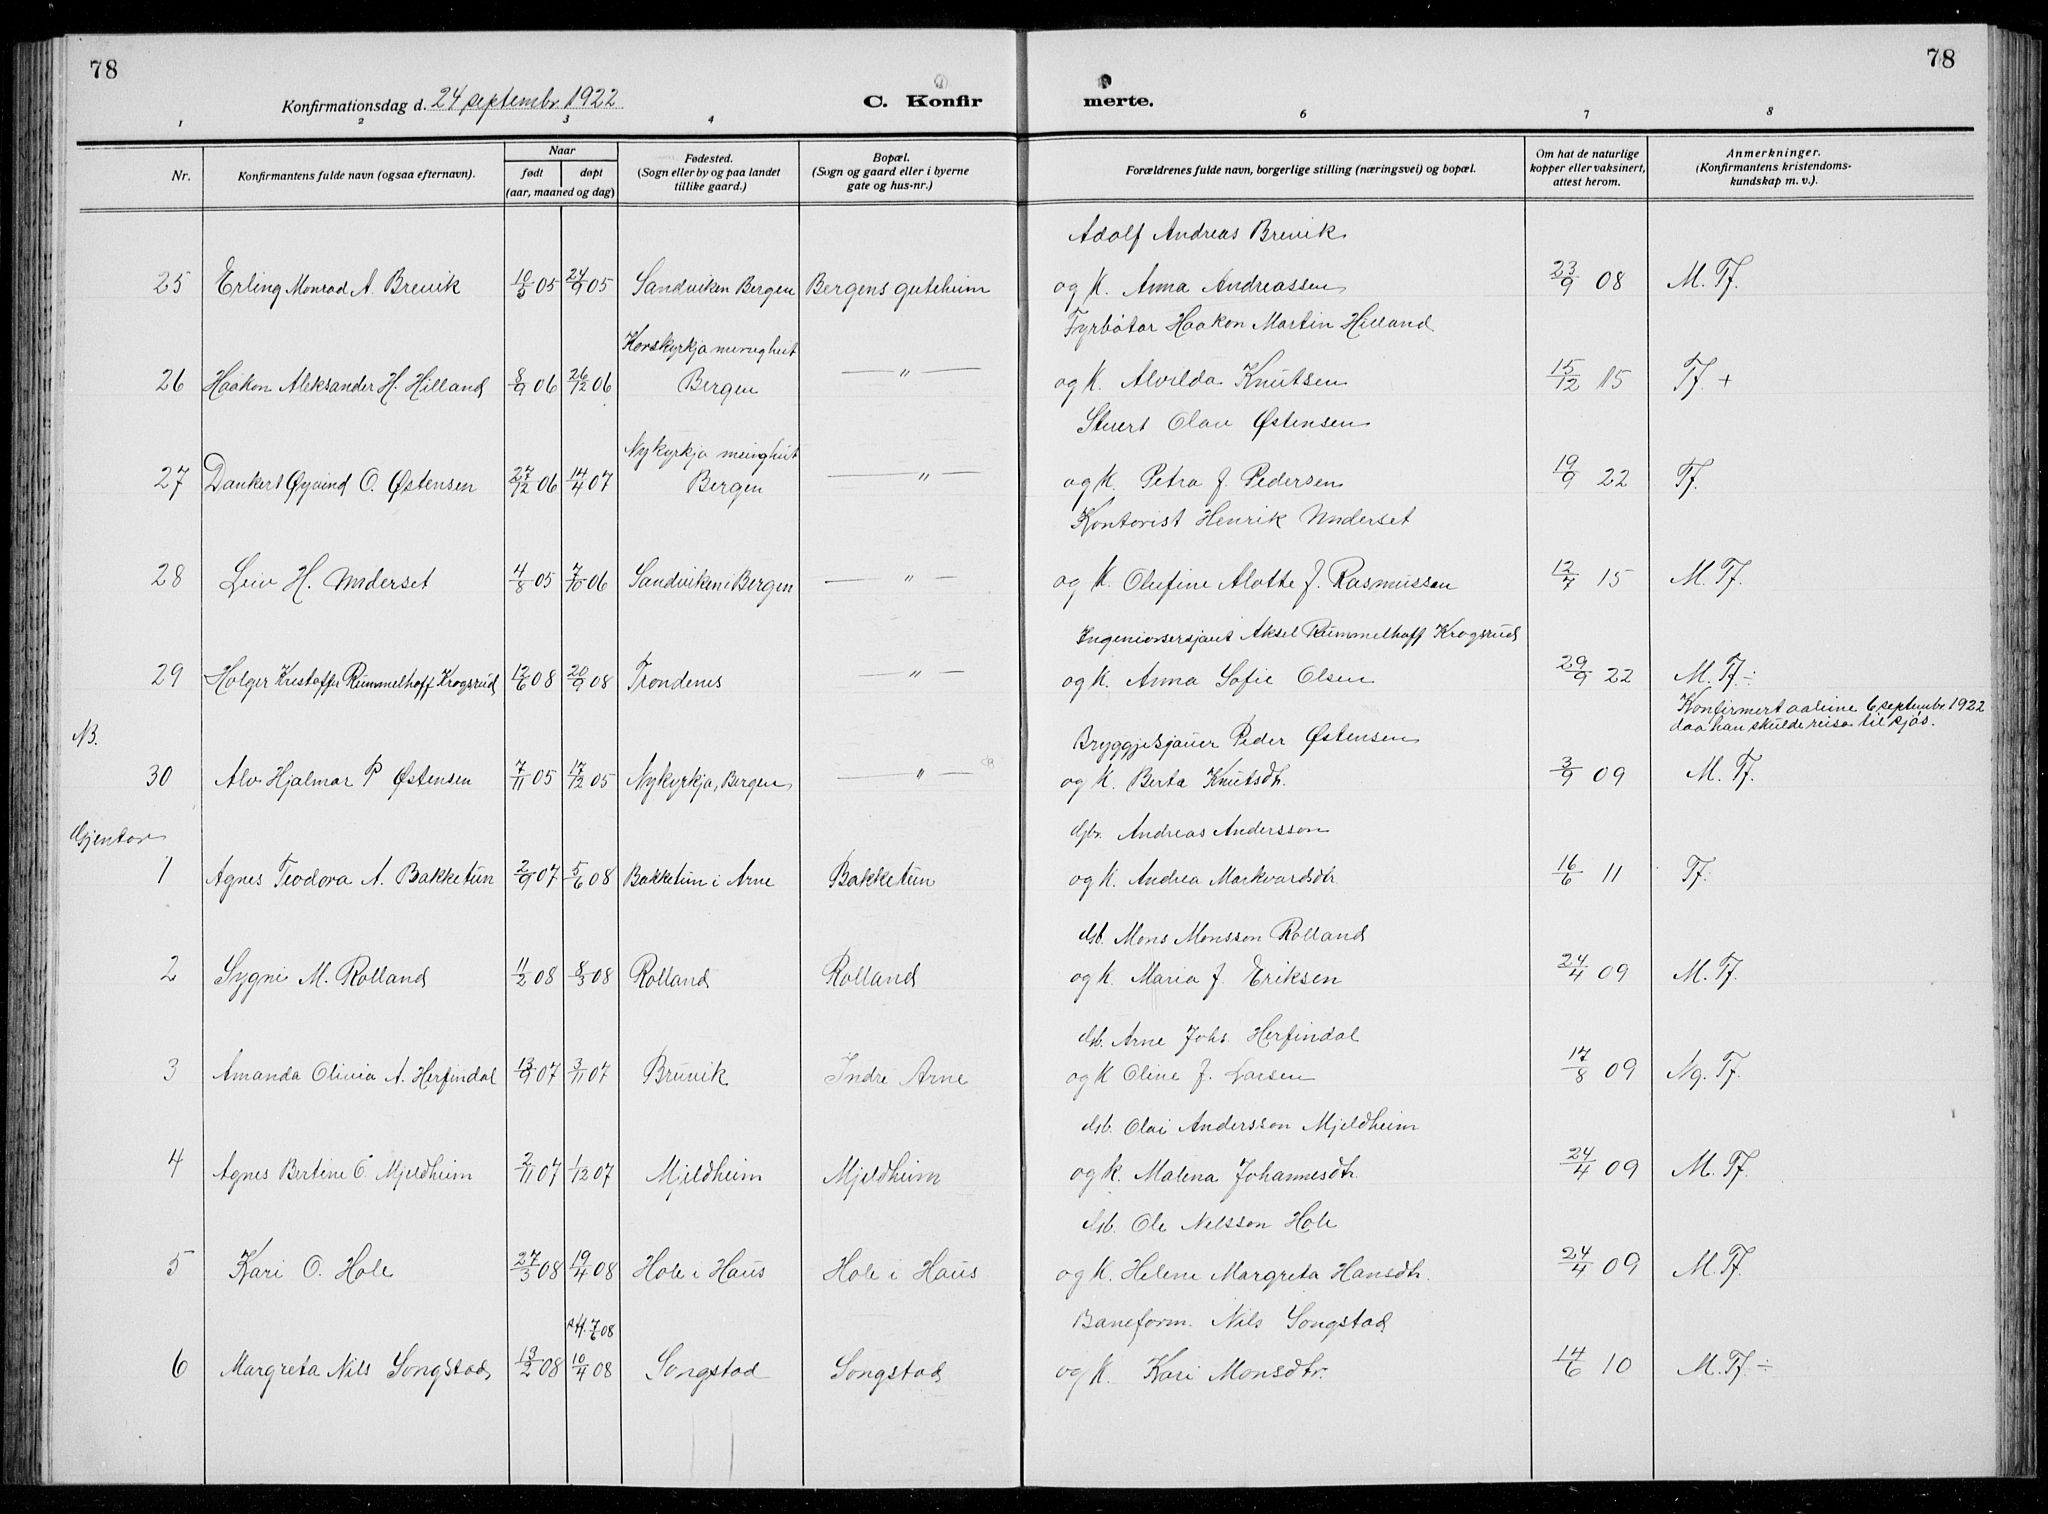 78
78
Konfirmationsdag d. 24 septembr. 1922
C. Konfirmerte.
1 2 3 4 6 7 8
Nr.
Konfirmantens fulde navn (ogsaa efternavn).
Naar
født
døpt
(aar, maaned og dag)
Fødested.
(Sogn eller by og paa landet
tillike gaard.)
Bopæl.
(Sogn og gaard eller i byerne
gate og hus-nr.)
Forældrenes fulde navn, borgerlige stilling (næringsvei) og bopæl.
Om hat de naturlige
kopper eller vaksinert,
attest herom.
Anmerkninger.
(Konfirmantens kristendoms-
kundskap m. v.).
Adolf Andreas Brevik
25 Erling Monrad A. Brevik 10/5 05 24/9 05 Sandviken Bergen Bergens guteheim og K. Anna Andreassen 23/9 08 M. Tf.
Fyrbøtar Haakon Martin Hilland
Korskyrkja menigheit
26 Haakon Aleksander H. Hilland 8/9 06 26/12 06 Bergen — " — og K. Alvilda Knutsen 15/12 15 Tf. +
Stuert Olav Østensen
Nykyrkja menigheit
27 Dankert Øyvind O. Østensen 27/12 06 14/4 07 Bergen — " — og K. Petra f. Pedersen 19/9 22 Tf.
Kontorist Henrik Underset
28 Leiv H. Underset 4/8 05 7/10 06 Sandviken i Bergen — " — og K. Olufine Alotte f. Rasmussen 12/4 15 M. Tf.
Ingeniørsersjant Aksel Rummelhoff Krogsrud
29 Holger Kristoffer Rummelhoff Krogsrud 12/6 08 20/9 08 Trondenes — " — og K. Anna Sofie Olsen 29/9 22 M. Tf. ÷
Konfirmert aaleine 6 septembr 1922
daa han skulde reisa til sjøs.
NB.
Bryggjesjauer Peder Østensen
30 Alv Hjalmar P Østensen 7/11 05 17/12 05 Nykyrkja, Bergen — " — og K. Berta Knutsdtr. 3/9 09 M. Tf.
Gjentor
Gbr. Andreas Andersson
1 Agnes Teodora A. Bakketun 2/9 07 5/6 08 Bakketun i Arne Bakketun og K. Andrea Markvardsdtr 16/6 11 Tf.
Gb. Mons Monsson Rolland
2 Sygni M. Rolland 11/2 08 8/3 08 Rolland Rolland og K. Maria f. Eriksen 24/4 09 M. Tf.
Gb. Arne Johs. Herfindal
3 Amanda Olivia A. Herfindal 13/9 07 3/11 07 Bruvik Indre Arne og K Oline f. Larsen 17/8 09 Ng. Tf.
Gb. Olai Andersson Mjeldheim
4 Agnes Bertine O. Mjeldheim 2/11 07 1/12 07 Mjeldheim Mjeldheim og K. Malena Johannesdtr. 24/4 09 M. Tf.
Gb. Ole Nilsson Hole
5 Kari O. Hole 27/3 08 19/4 08 Hole i Haus Hole i Haus og K. Helene Margreta Hansdtr. 24/4 09 M. Tf.
Baneform. Nils Songstad
st. 7/6 08
6 Margreta Nils Songstad 13/2 08 10/4 08 Songstad Songstad og K. Kari Monsdtr. 14/6 10 M. Tf. ÷